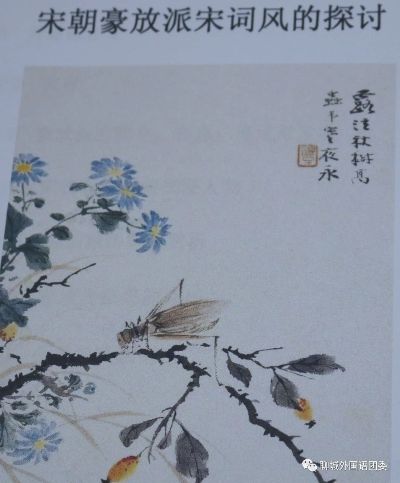 宋朝豪放派宋词风的探讨
露泫秋樹高
蟲弔寒夜永
聊城外国语团委